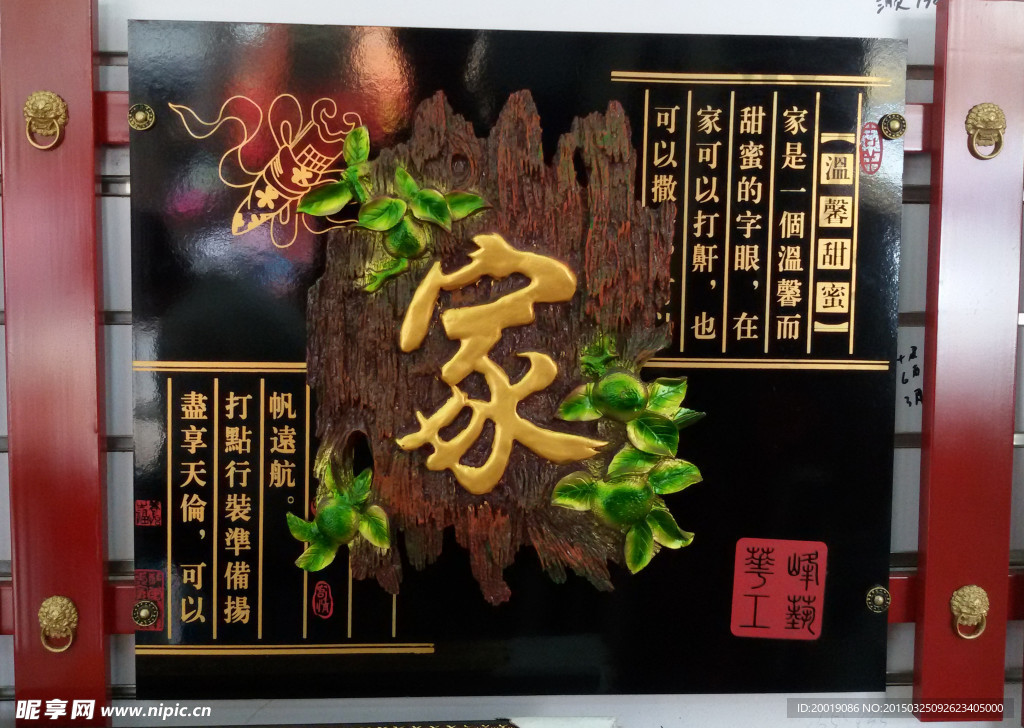 【溫馨甜蜜】
家是一個溫馨而
甜蜜的字眼，在
家可以打鼾，也
可以撒
家
帆遠航。
打點行裝準備揚
盡享天倫，可以
峰藝
華工
昵享网 www.nipic.cn
ID:20019086 NO:20150325092623405000